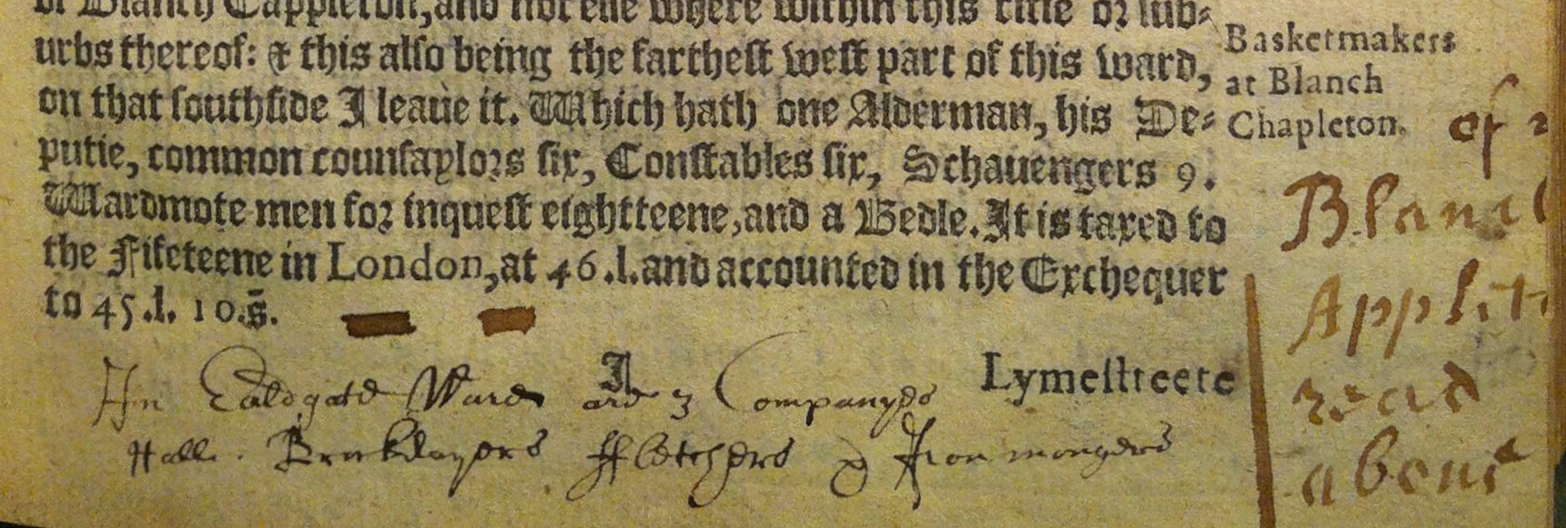 of Blanch Cappleton, and not else where within this citie or sub-
urbs thereof: & this also being the farthest west part of this ward,
on that southside I leaue it. Which hath one Alderman, his De-
putie, common counsaylors six, Constables six, Schauengers 9.
Wardmote men for inquest eightteene, and a Bedle. It is taxed to
the Fifeteene in London, at 46.l. and accounted in the Exchequer
to 45.l. 10.s.
Basketmakers
at Blanch
Chapleton.
I
Lymestreete
In Ealdgate Ward ard 3 Companyes
Halls. Bricklayers ffletchers & Iron mongers
of
Blanc
Applet
read
aboue